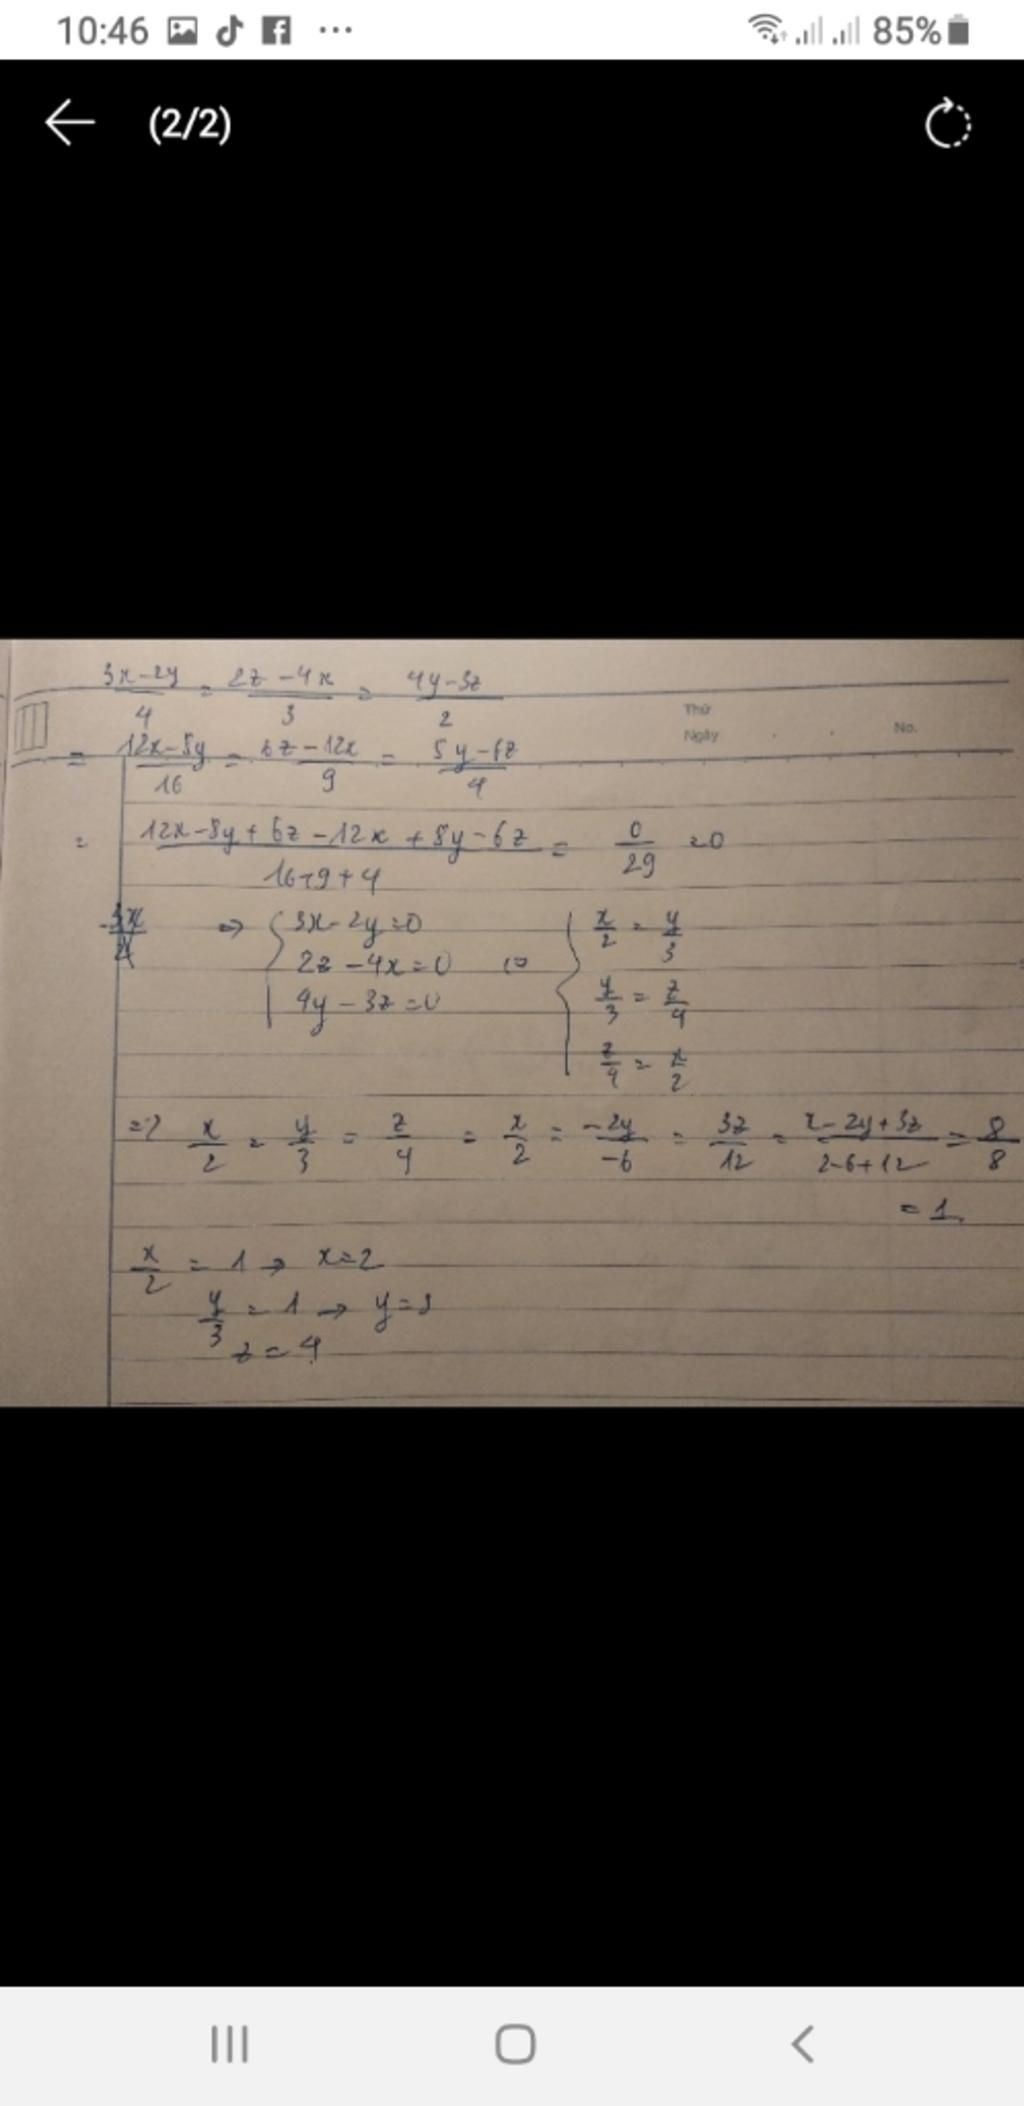 10:46 ... 85%
(2/2)
3x-2y/4 = 2z-4x/3 = 4y-3z/2
Thứ
Ngày
No.
= 12x-8y/16 = 6z-12x/9 = 8y-6z/4
= 12x-8y+6z-12x+8y-6z/16+9+4 = 0/29 = 0
⇒ { 3x-2y=0
2z-4x=0
4y-3z=0
⇔ { x/2 = y/3
y/3 = z/4
z/4 = x/2
=> x/2 = y/3 = z/4 = x/2 = -2y/-6 = 3z/12 = x-2y+3z/2-6+12 = 8/8
= 1
x/2 = 1 → x=2
y/3 = 1 → y=3
z=4